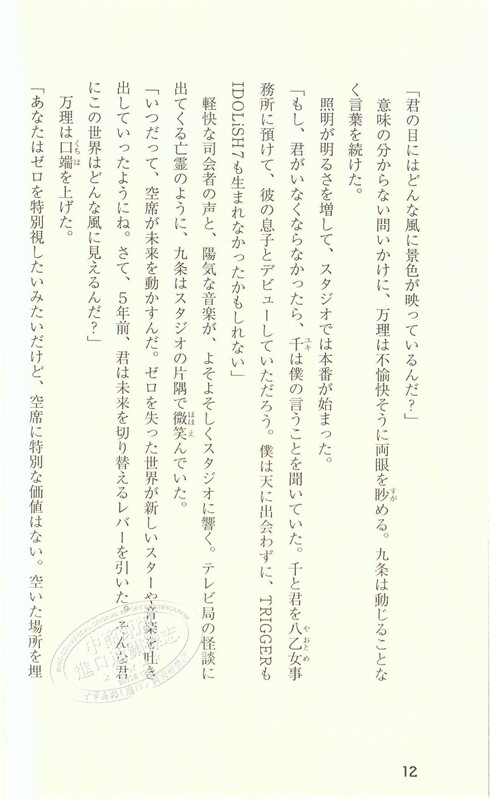 「君の目にはどんな風に景色が映っているんだ？」
意味の分からない問いかけに、万理は不愉快そうに両眼を眇める。九条は動じることな
く言葉を続けた。
照明が明るさを増して、スタジオでは本番が始まった。
「もし、君がいなくならなかったら、千は僕の言うことを聞いていた。千と君を八乙女事
務所に預けて、彼の息子とデビューしていただろう。僕は天に出会わずに、TRIGGERも
IDOLiSH7も生まれなかったかもしれない」
軽快な司会者の声と、陽気な音楽が、よそよそしくスタジオに響く。テレビ局の怪談に
出てくる亡霊のように、九条はスタジオの片隅で微笑んでいた。
「いつだって、空席が未来を動かすんだ。ゼロを失った世界が新しいスターや音楽を吐き
出していったようにね。さて、５年前、君は未来を切り替えるレバーを引いた。そんな君
にこの世界はどんな風に見えるんだ？」
万理は口端を上げた。
「あなたはゼロを特別視したいみたいだけど、空席に特別な価値はない。空いた場所を埋
12